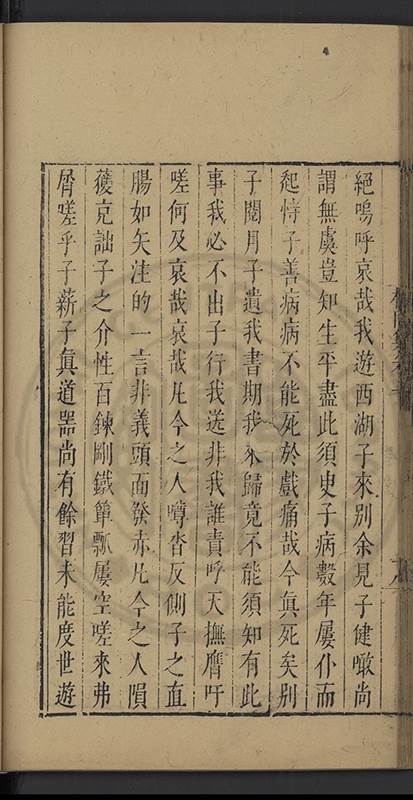 絕嗚呼哀哉我遊西湖子來別余見子健噉尚
謂無虞豈知生平盡此須臾子病數年屢仆而
起恃子善病病不能死於戲痛哉今真死矣別
子閱月子遺我書期我來歸竟不能須知有此
事我必不出子行我送非我誰責呼天撫膺吁
嗟何及哀哉哀哉凡今之人噂沓反側子之直
腸如矢注的一言非義頭面發赤凡今之人隕
穫克詘子之介性百鍊剛鐵簞瓢屢空嗟來弗
屑嗟乎子薪子真道器尚有餘習未能度世遊